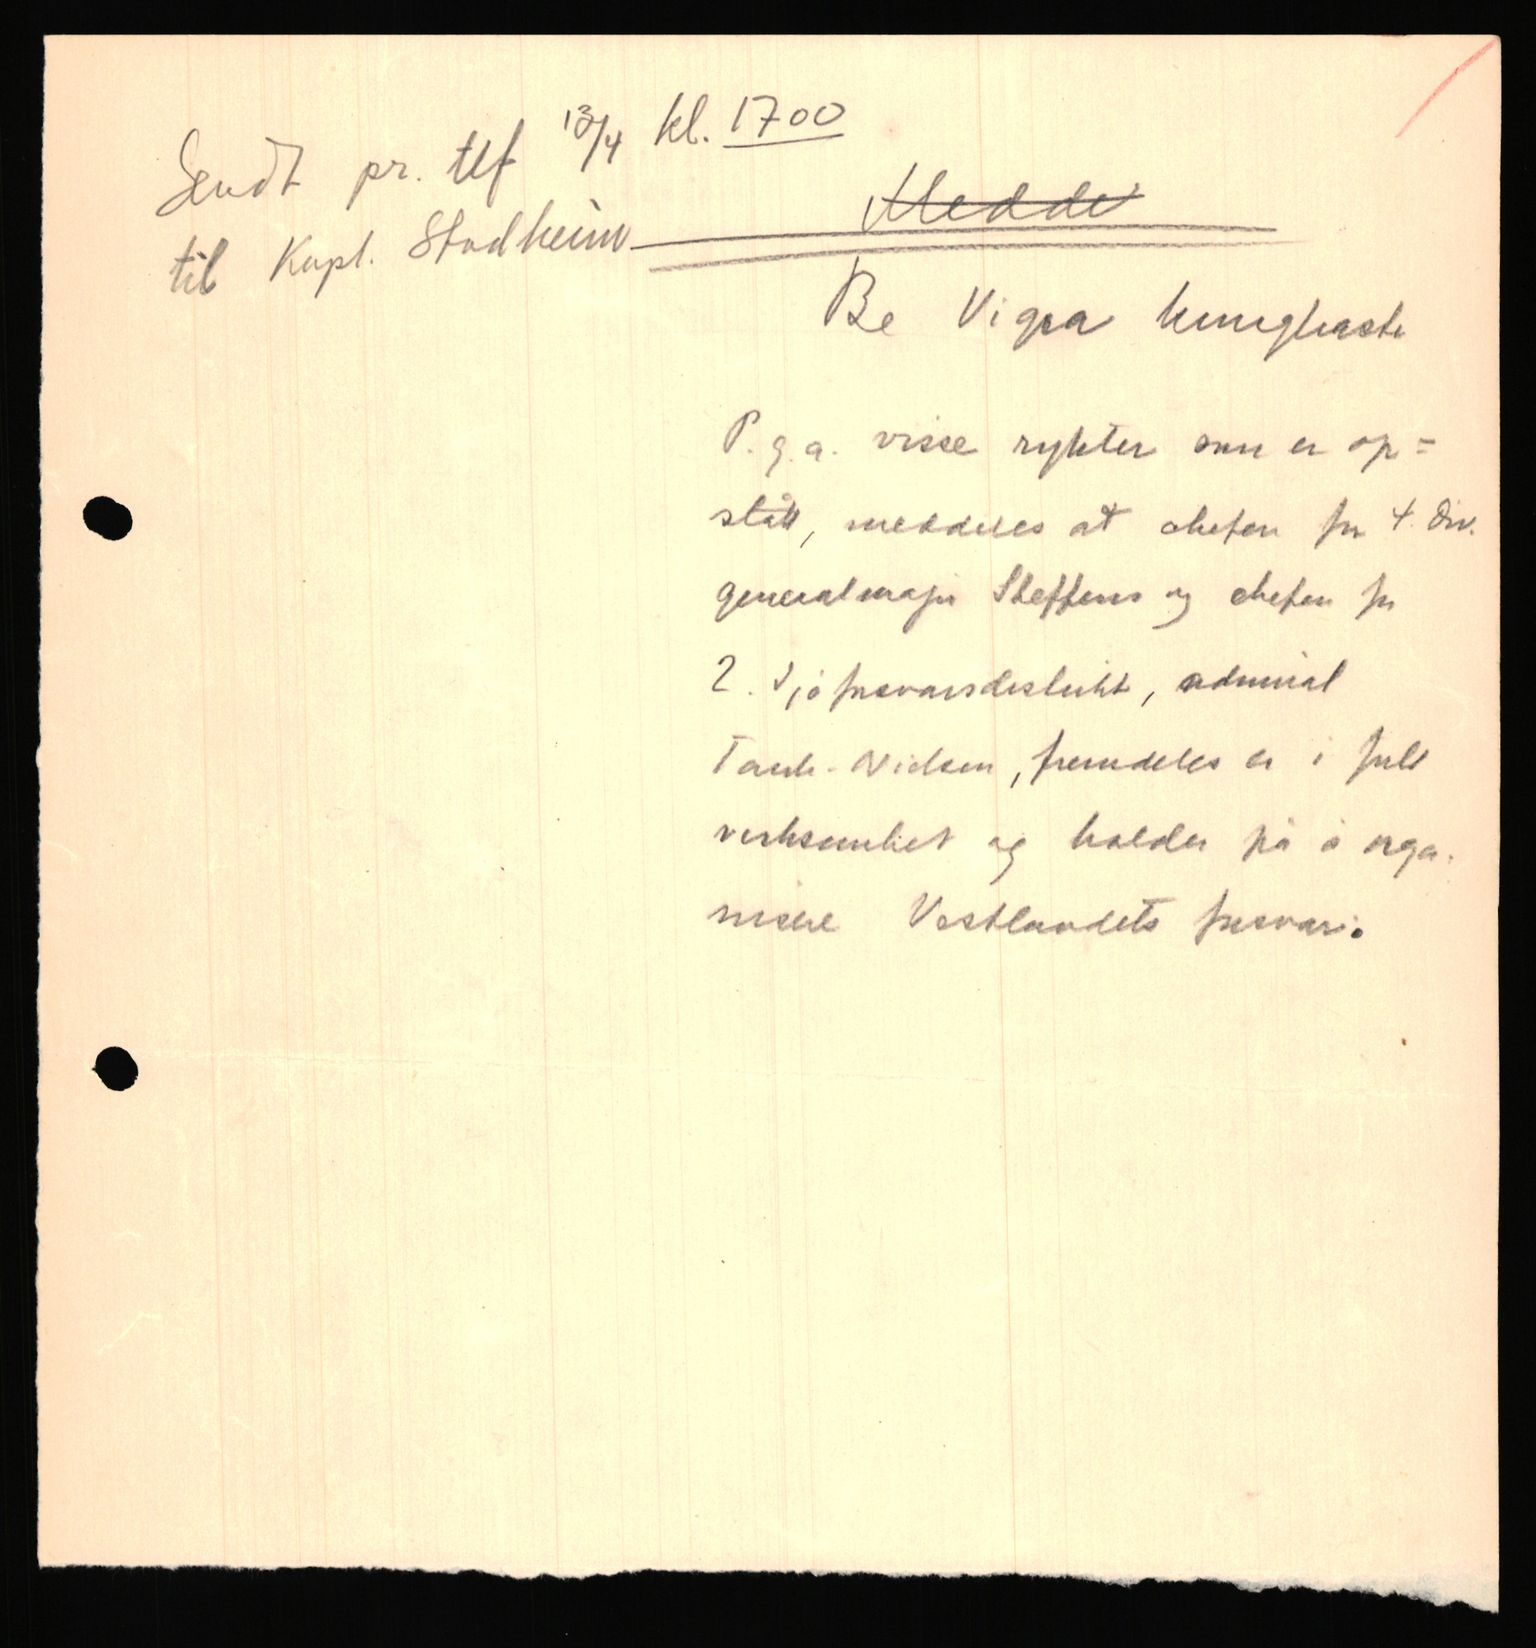 Sendt pr. tlf 13/4 kl. 1700
til Kapt. Stadheim
Medde
Be Vigra kunngjøre
P.g.a. visse rykter som er op=
stått, meddeles at chefen for 4. Div.
generalmajor Steffens og chefen for
2. Sjøforsvarsdistrikt, admiral
Tank-Nielsen, fremdeles er i full
virksomhet og holder på å orga-
nisere Vestlandets forsvar.